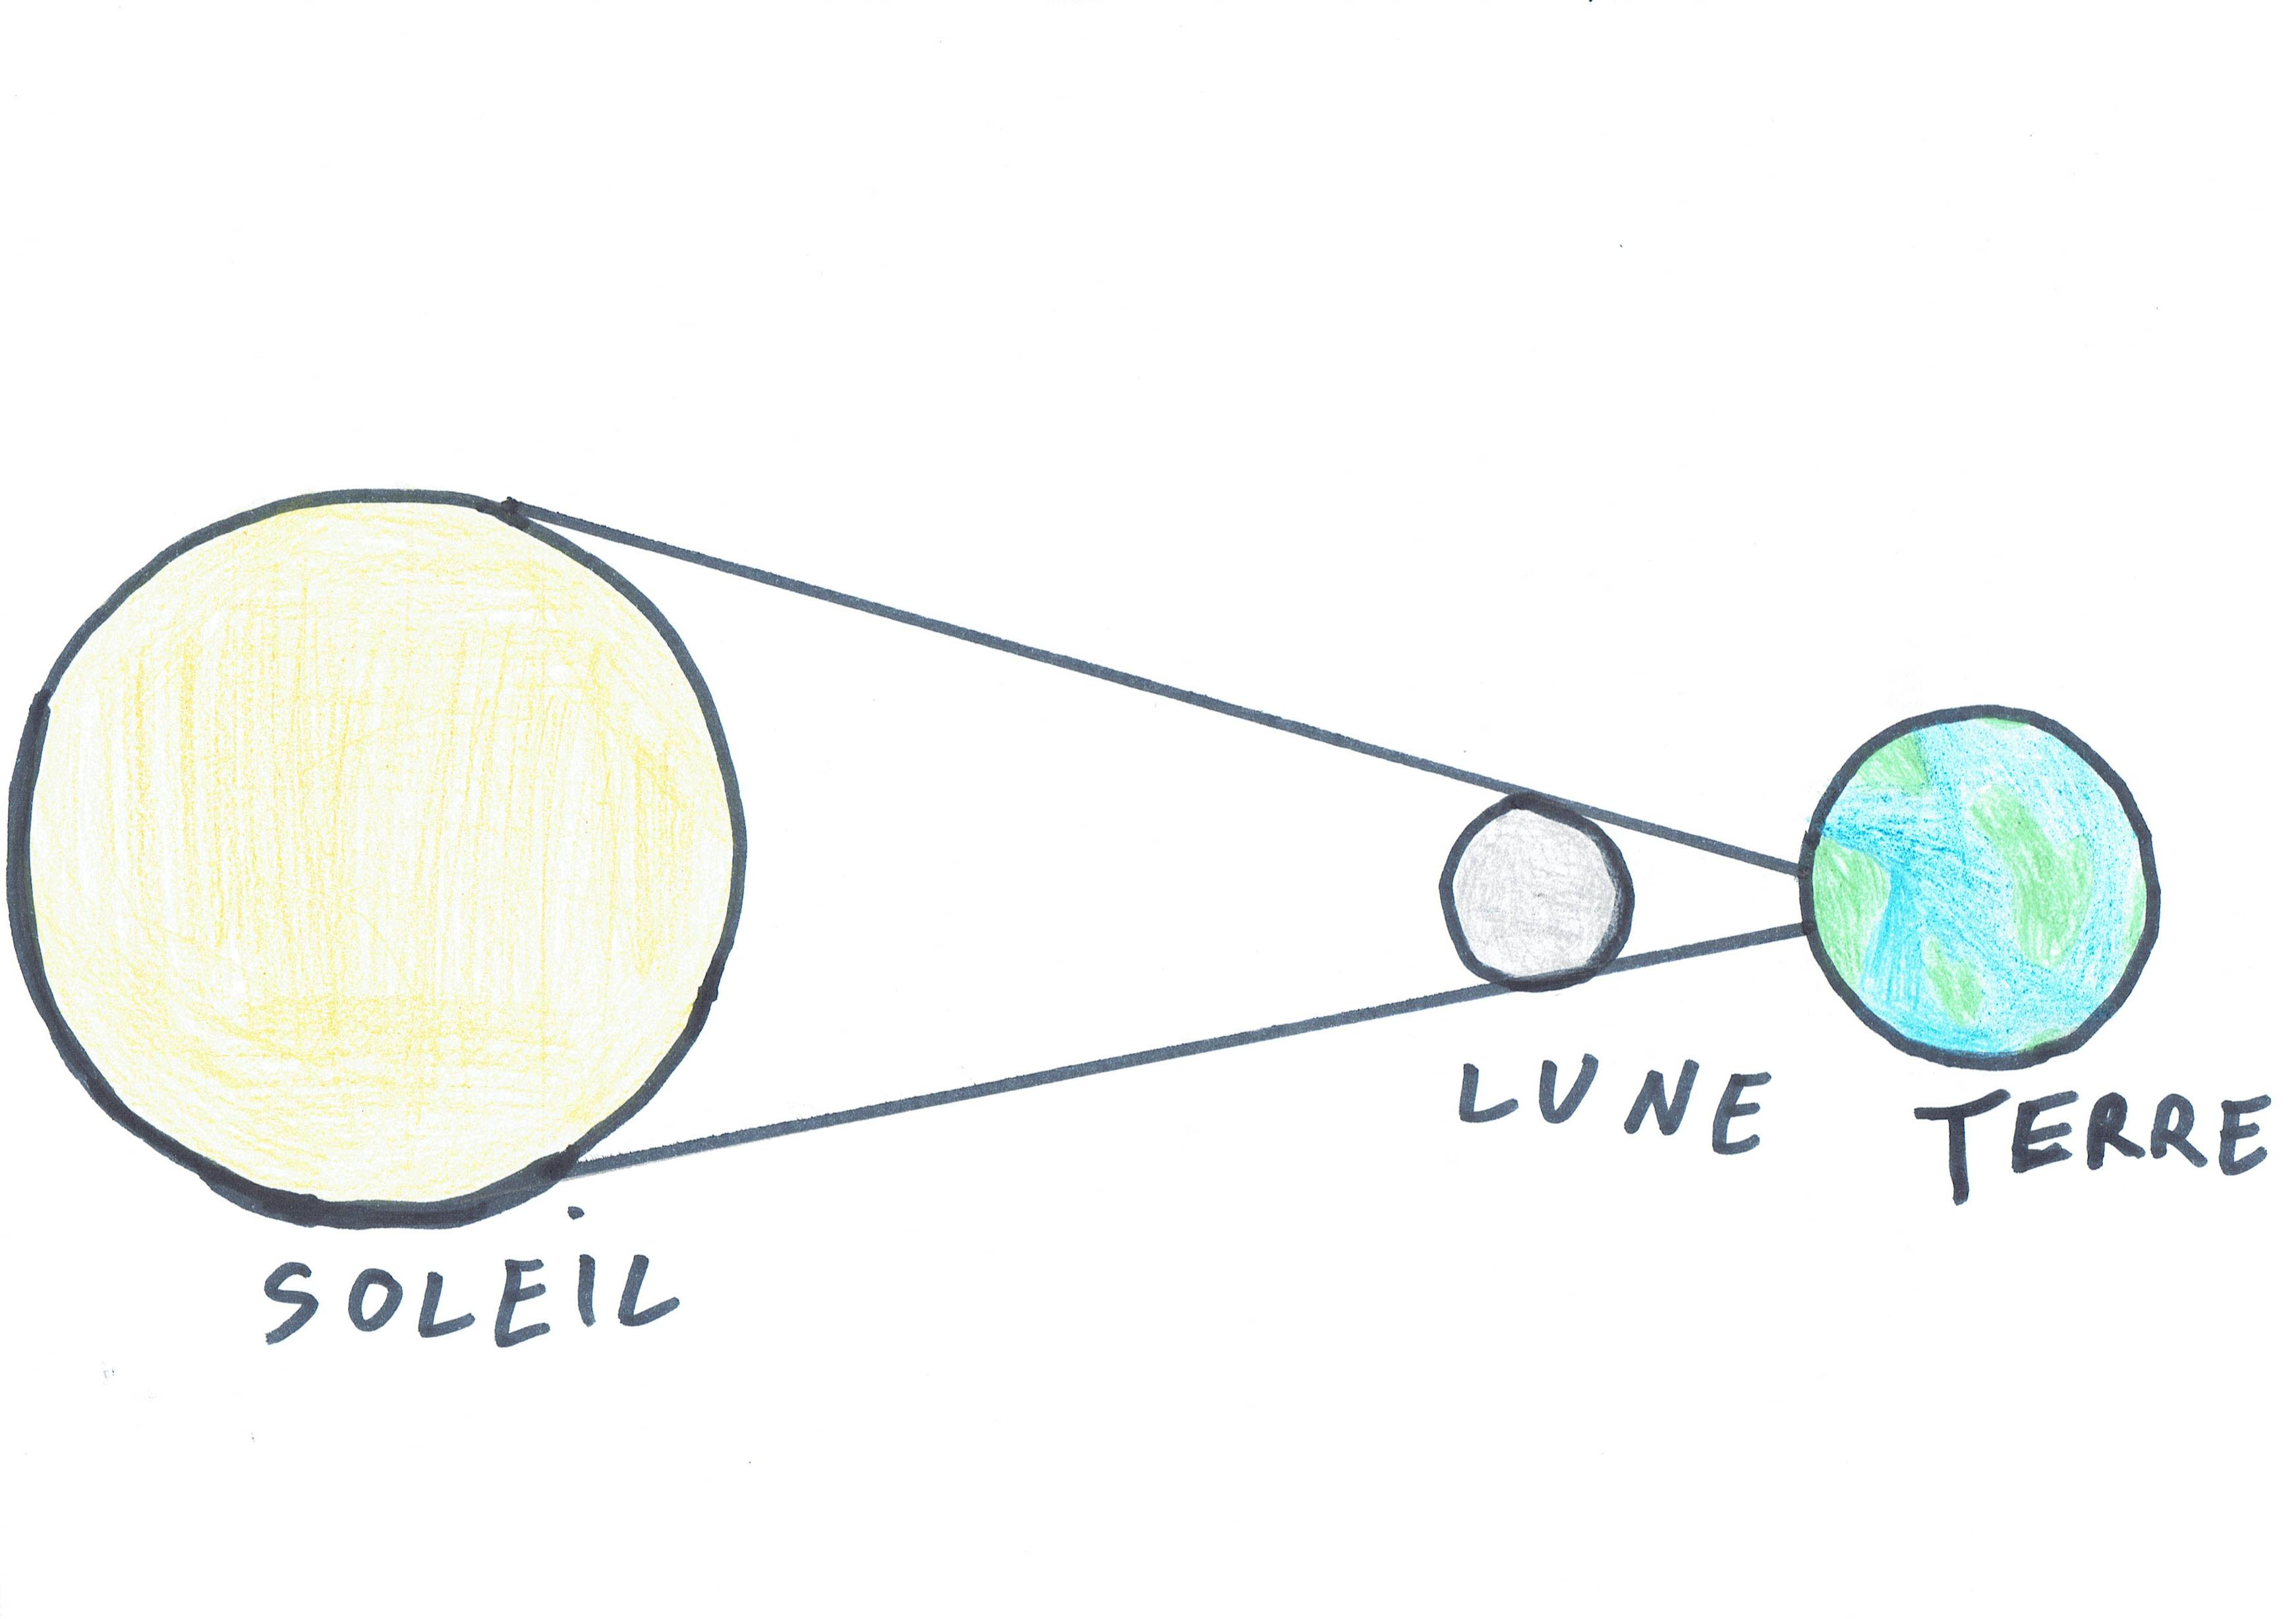 LUNE
TERRE
SOLEIL